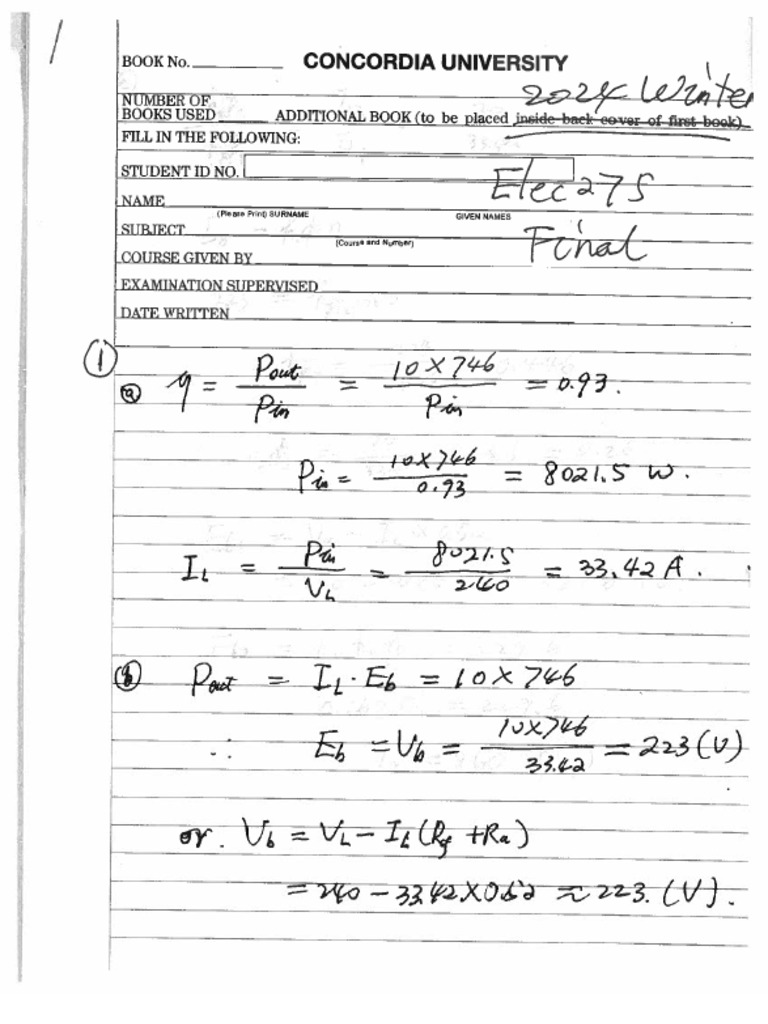 /
BOOK No. CONCORDIA UNIVERSITY
2024 Winter
NUMBER OF
BOOKS USED ADDITIONAL BOOK (to be placed inside back cover of first book)
FILL IN THE FOLLOWING:
STUDENT ID NO.
Elec 275
NAME
(Please Print) SURNAME GIVEN NAMES
SUBJECT
(Course and Number)
Final
COURSE GIVEN BY
EXAMINATION SUPERVISED
DATE WRITTEN
①
ⓐ η = Pout / Pin = 10 × 746 / Pin = 0.93.
Pin = 10×746 / 0.93 = 8021.5 W.
IL = Pin / VL = 8021.5 / 240 = 33.42 A.
ⓑ Pout = IL · Eb = 10 × 746
∴ Eb = Vb = 10×746 / 33.42 = 223 (V)
or. Vb = VL − IL (Rf + Ra)
= 240 − 33.42 × 0.52 ≈ 223. (V).